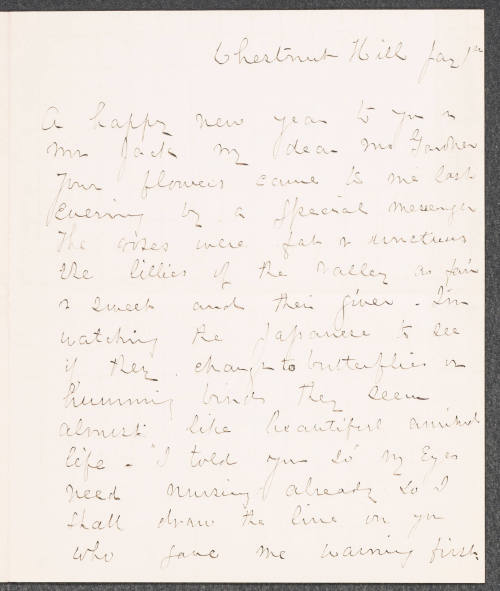 Chestnut Hill Jay 1st
A happy new year to you &
Mr Jack my dear Mrs Gardner
Your flowers came to me last
evening by a special messenger
The roses were fat & unctuous
the lillies of the valley as fair
& sweet and their giver - I'm
watching the Japanese to see
if they change to butterflies or
humming birds they seem
almost like beautiful animal
life - "I told you so" my Eyes
need nursing already so I
shall draw the line on you
who gave me warning first.